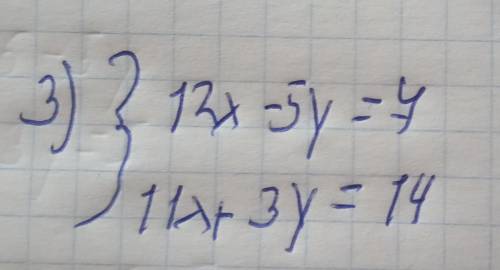 3) { 12x - 5y = 7
11x + 3y = 14